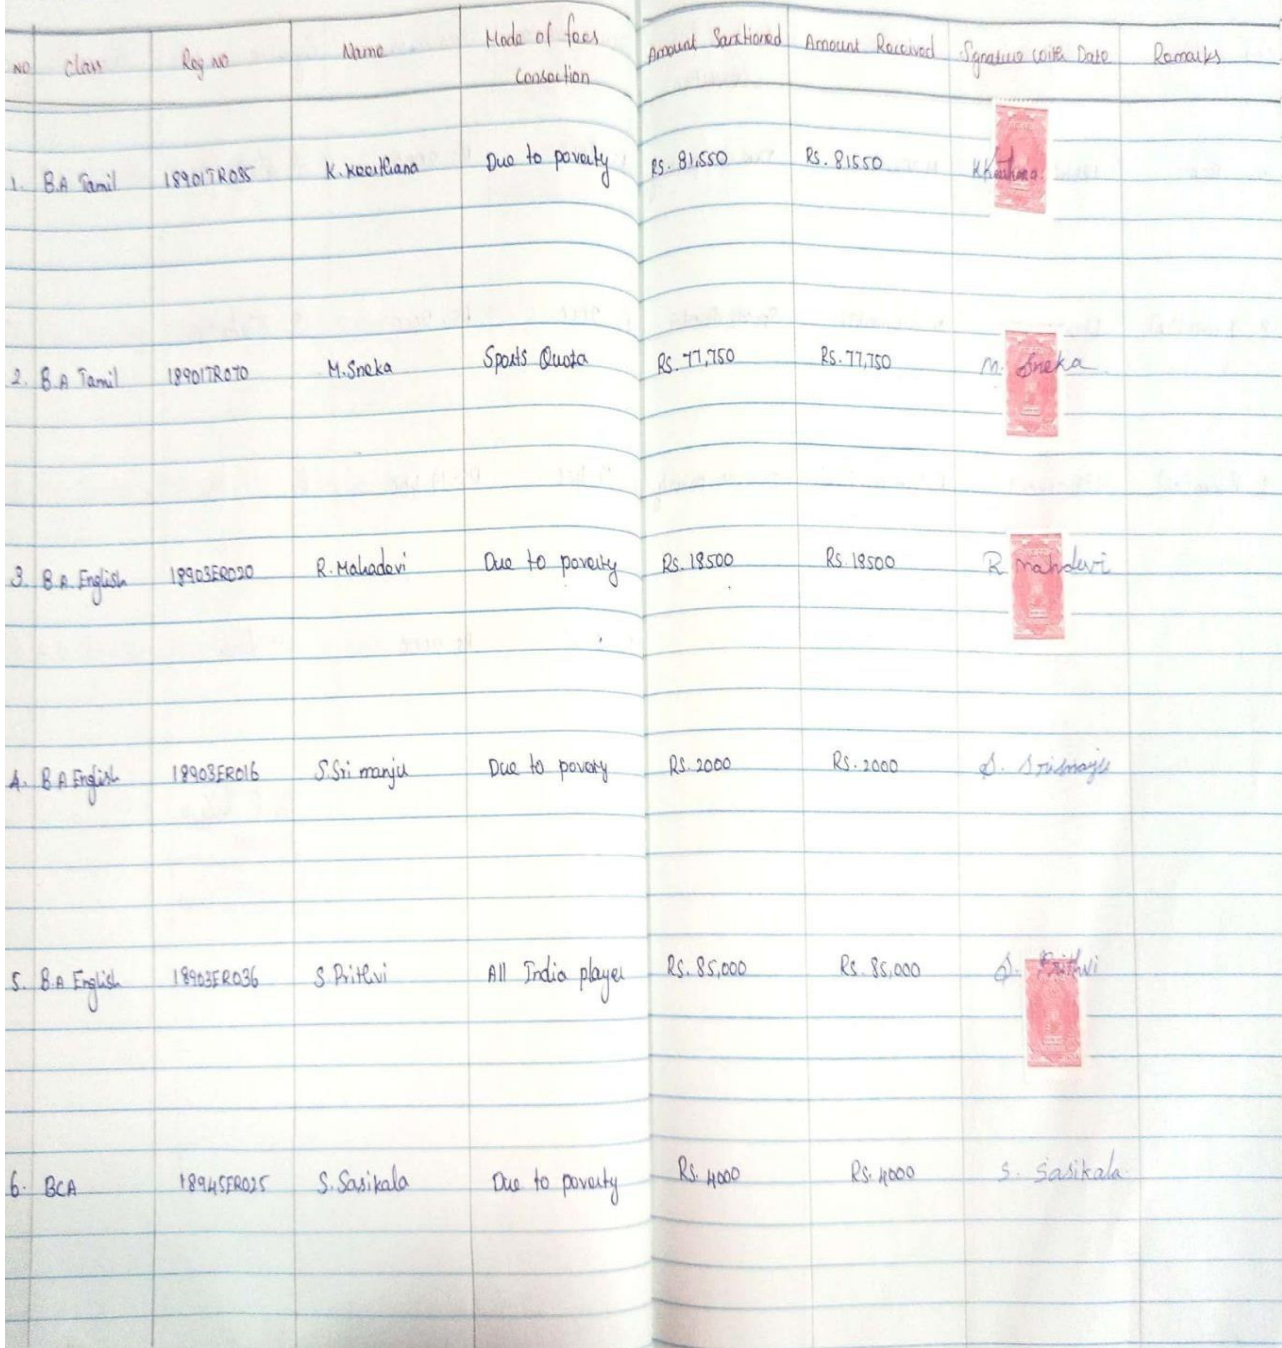 NO Class Reg NO Name Mode of fees Consection Amount Sanctioned Amount Received Signature with Date Remarks
1. B.A Tamil 18901TR035 K. Keerthana Due to poverty RS. 81,550 RS. 81550 K Keerthana
2. B.A Tamil 18901TR070 M.Sneka Sports Quota RS. 77,750 RS. 77,750 M. Sneka
3. B.A. English 18903ER020 R. Mahadevi Due to poverty RS. 18500 RS. 18500 R mahdevi
4. B A English 18903ER016 S.Sri manju Due to poverty RS. 2000 RS. 2000 S.
5. B.A English 18903ER036 S Prithvi All India player RS. 85,000 RS. 85,000 S. Prithvi
6. BCA 18945ER025 S. Sasikala Due to poverty RS. 4000 RS. 4000 S. Sasikala